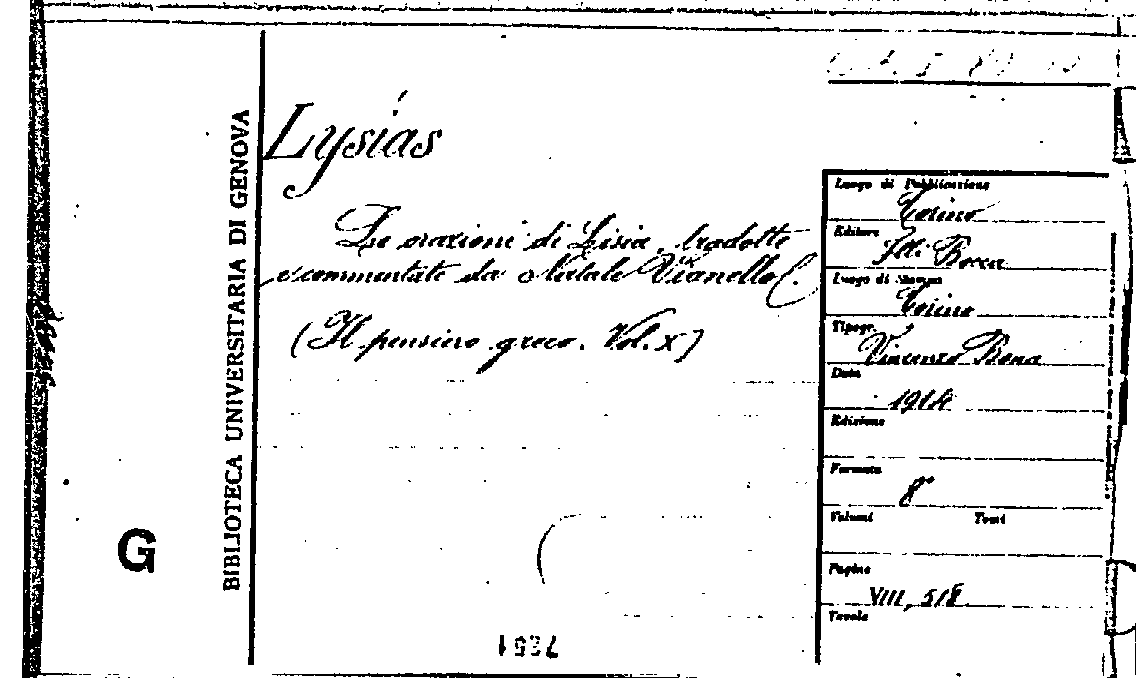 Lysias
Le orazioni di Lisia, tradotte
e commentate da Natale Vianello.
(Il pensiero greco. Vol. X)
BIBLIOTECA UNIVERSITARIA DI GENOVA
G
Luogo di Pubblicazione
Torino
Editore
F.lli Bocca
Luogo di Stampa
Torino
Tipogr.
Vincenzo Bona
Data
1914
Edizione
Formato
8°
Volumi Tomi
Pagine
VIII, 518
Tavole